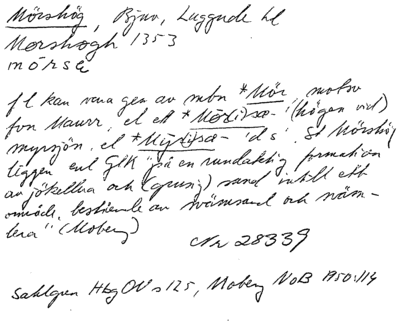 Mörshög, Bjuv, Luggude hd
Morshogh 1353
mörse
fl kan vara gen av mbn *Mör, motsv
fvn Maurr, el ett - '(högen vid)
myrsjön, el - 'ds'. St Mörshög
ligger enl GlK "på en rundaktig formation
av jökellera och (grusig) sand intill ett
område, bestående av svämsand och sväm-
lera" (Moberg)
Nr 28339
Sahlgren HbgON s 125, Moberg NoB 1950:114